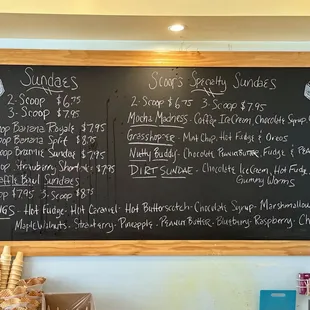 Sundaes
2-Scoop $6.75
3-Scoop $7.95
Banana Royale $7.95
Banana Split $8.
Brownie Sundae $7.95
Strawberry Shortcake $7.95
Waffle Bowl Sundaes
$7.95 3-Scoop $8.75
Scoop's Specialty Sundaes
2-Scoop $6.75 3-Scoop $7.95
Mocha Madness - Coffee Ice Cream, Chocolate Syrup,
Grasshopper - Mint Chip, Hot Fudge & Oreos
Nutty Buddy - Chocolate, Peanut Butter, Fudge &
Dirt Sundae - Chocolate Ice Cream, Hot Fudge,
Gummy Worms
Hot Fudge - Hot Caramel - Hot Butterscotch - Chocolate Syrup - Marshmallow
Maple Walnuts - Strawberry - Pineapple - Peanut Butter - Blueberry - Raspberry -